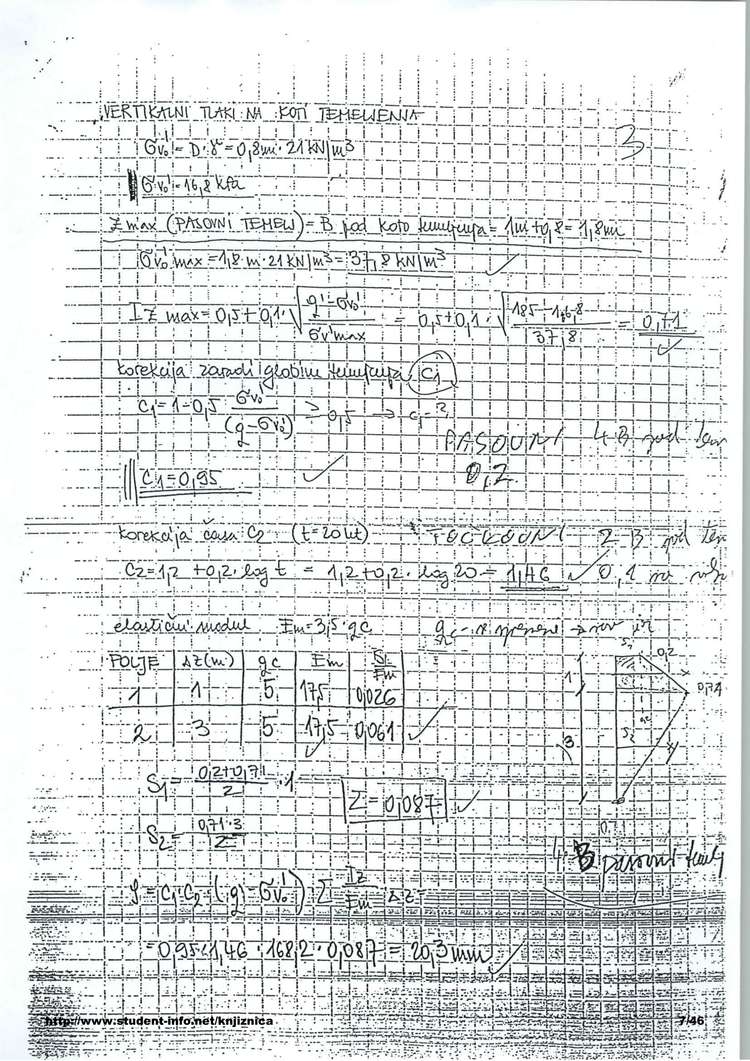 VERTIKALNI TLAKI NA KOTI TEMELJENJA
σv₀' = D·γ = 0,8m·21 kN/m³
3
σv₀' = 16,8 kPa
Z max (PASOVNI TEMELJ) = B pod koto temeljenja = 1m+0,8 = 1,8m
σv₀' max = 1,8 m·21 kN/m³ = 37,8 kN/m³
IZ max = 0,5+0,1·√((q'-σv₀')/(σv'max)) = 0,5+0,1·√((185-16,8)/37,8) = 0,71
korekcija zaradi globine temeljenja C1
C1 = 1-0,5 σv₀'/(q-σv₀') ≥ 0,5 → C1 = ?
PASOVNI 4B pod tem
0,2
C1 = 0,95
korekcija časa C2 (t=20 let) TOČKOVNI 2B pod tem
C2 = 1,2 + 0,2·log t = 1,2+0,2·log 20 = 1,46 0,1 na
elastični modul Em = 3,5·qc
POLJE Δz(m) qc Em Si/Em
1 1 5 17,5 0,026
2 3 5 17,5 0,061
S1 0,2
1 0,71
S2
3
S1 = (0,2+0,71)/2 ·1
Σ = 0,087
S2 = (0,71·3)/2
0,71
4·B pasovni temelj
ρ = C1·C2·(q-σv₀') Σ Iz/Em Δz =
= 0,95·1,46·168,2·0,087 = 20,3 mm
http://www.student-info.net/knjiznica
7/46